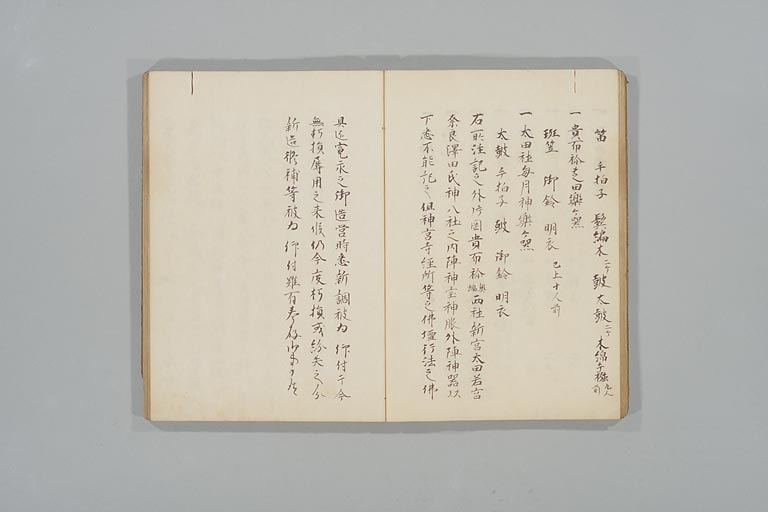 笛 手拍子 鬢編木二ケ 皷 太皷二ケ 木綿手襁九人前
一貴布祢芝田樂ケ器
班笠 御鈴 明衣 已上十人前
一太田社毎月神樂ケ器
太皷 手拍子 皷 御鈴 明衣
右所注記之外片岡貴布祢 両社新宮太田若宮
奈良澤田氏神八社之内陣神宝神服外陣神器以
下悉不能記之但神宮寺經所等之佛壇行法之佛
具迄寛永之御造営時悉新調被為 仰付于今
無朽損辱用之来候仍今度朽損或紛失之分
新造修補等被為 仰付難有奉存